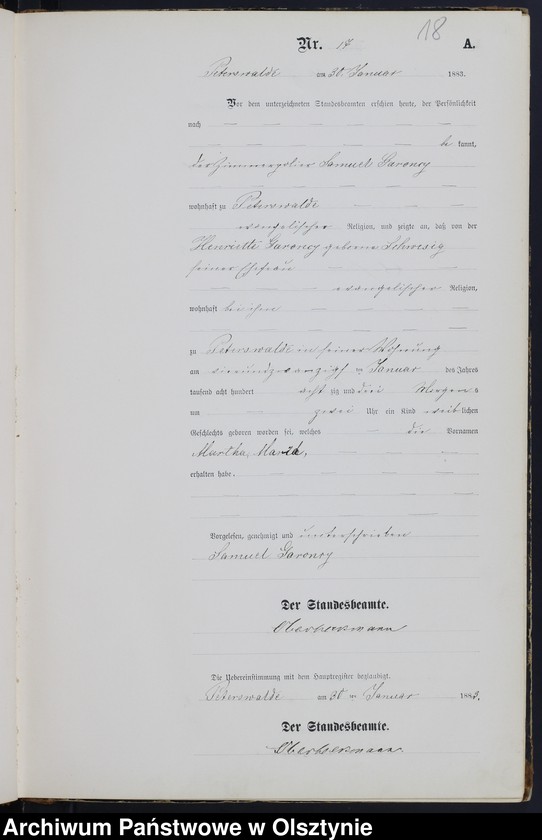 18
Nr. 17 A.
Peterswalde am 30 Januar 1883.
Vor dem unterzeichneten Standesbeamten erschien heute, der Persönlichkeit
nach
be kannt,
der Samuel
wohnhaft zu Peterswalde
evangelischer Religion, und zeigte an, daß von der
Henriette geborne Schwesig
seiner Ehefrau
evangelischer Religion,
wohnhaft bei ihm
zu Peterswalde in seiner Wohnung
am vierundzwanzigsten Januar des Jahres
tausend acht hundert acht zig und drei Morgens
um zwei Uhr ein Kind weiblichen
Geschlechts geboren worden sei, welches die Vornamen
Martha, Maria,
erhalten habe.
Vorgelesen, genehmigt und unterschrieben
Samuel
Der Standesbeamte.
Die Uebereinstimmung mit dem Hauptregister beglaubigt.
Peterswalde am 30 ten Januar 1883.
Der Standesbeamte.
Archiwum Państwowe w Olsztynie